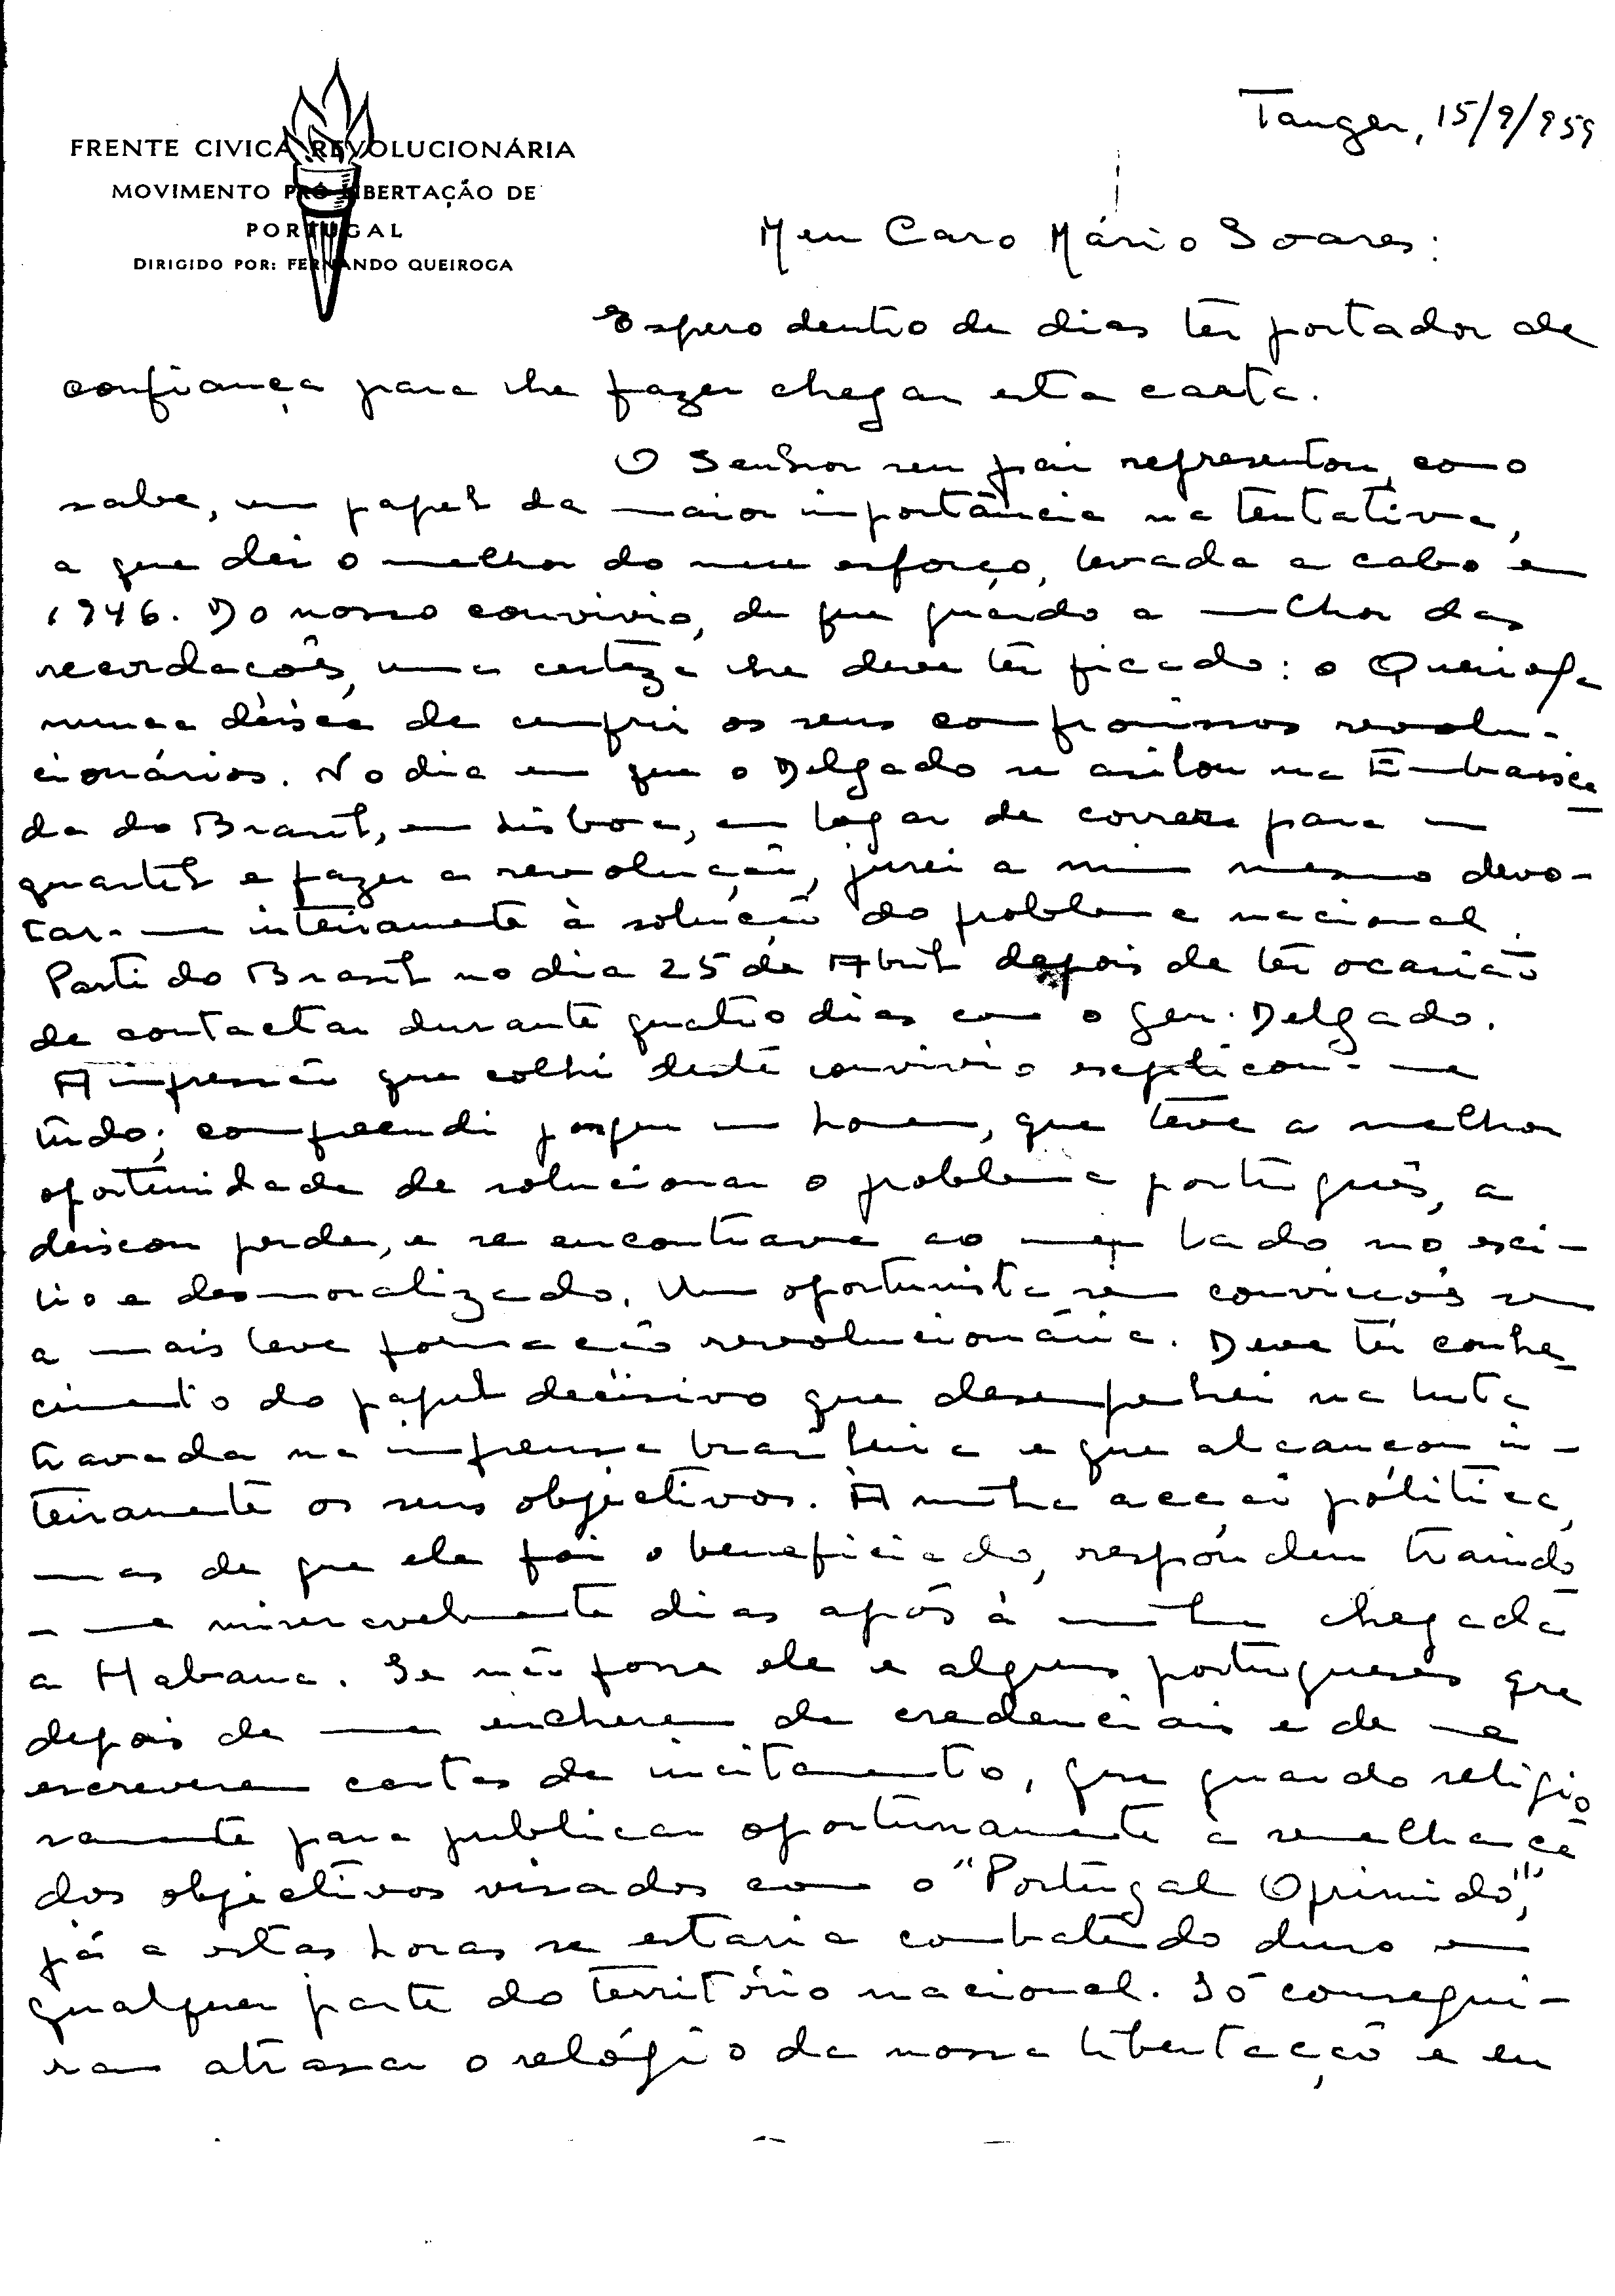 FRENTE CIVICA REVOLUCIONÁRIA
MOVIMENTO PRÓ LIBERTAÇÃO DE
PORTUGAL
DIRIGIDO POR: FERNANDO QUEIROGA
Tanger, 15/9/959
Meu Caro Mário Soares:
Espero dentro de dias ter portador de
confiança para lhe fazer chegar esta carta.
O Senhor seu pai representou, como
sabe, um papel da maior importância na tentativa,
a que dei o melhor do meu esforço, levada a cabo em
1946. Do nosso convivio, de que guardo a melhor das
recordações, uma certeza lhe deve ter ficado: o Queiroga
nunca deixa de cumprir os seus compromissos revolu-
cionários. No dia em que o Delgado se asilou na Embaixa-
da do Brasil, em Lisboa, em logar de correr para um
quartel e fazer a revolução, jurei a mim mesmo devo-
tar-me inteiramente à solução do problema nacional.
Parti do Brasil no dia 25 de Abril depois de ter ocasião
de contactar durante quatro dias com o Gen. Delgado.
A impressão que colhi deste convivio explicou-me
tudo; compreendi porque um homem, que teve a melhor
oportunidade de solucionar o problema português, a
deixou perder, e se encontrava ao meu lado no exi-
lio e desmoralizado. Um oportunista sem convicções sem
a mais leve formação revolucionária. Deve ter conhe-
cimento do papel decisivo que desempenhei na luta
travada na imprensa brasileira e que alcançou in-
teiramente os seus objectivos. À minha acção política,
mas de que ele foi o beneficiado, respondeu traindo
-me miseravelmente dias após à minha chegada
a Habana. Se não fosse ele e alguns portugueses que
depois de me encherem de credenciais e de me
escreverem cartas de incitamento, que guardo religio
samente para publicar oportunamente à semelhança
dos objectivos visados com o "Portugal Oprimido",
já a estas horas se estaria combatendo duro em
qualquer parte do território nacional. Só consegui-
ram atrasar o relógio da nossa libertação e eu